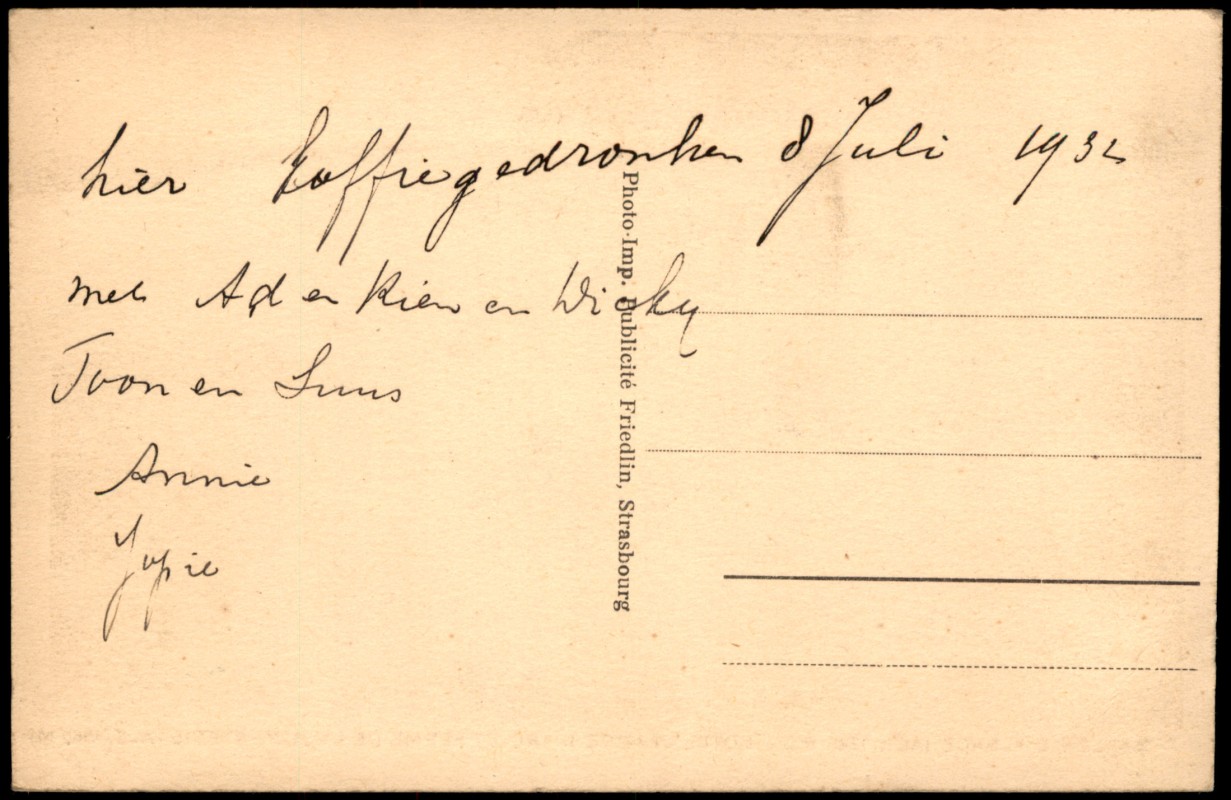 hier Koffiegedronken 8 Juli 1932
met Ad en Rien en Wicky
Toon en Luus
Annie
Jopie
Photo-Imp. Publicité Friedlin, Strasbourg